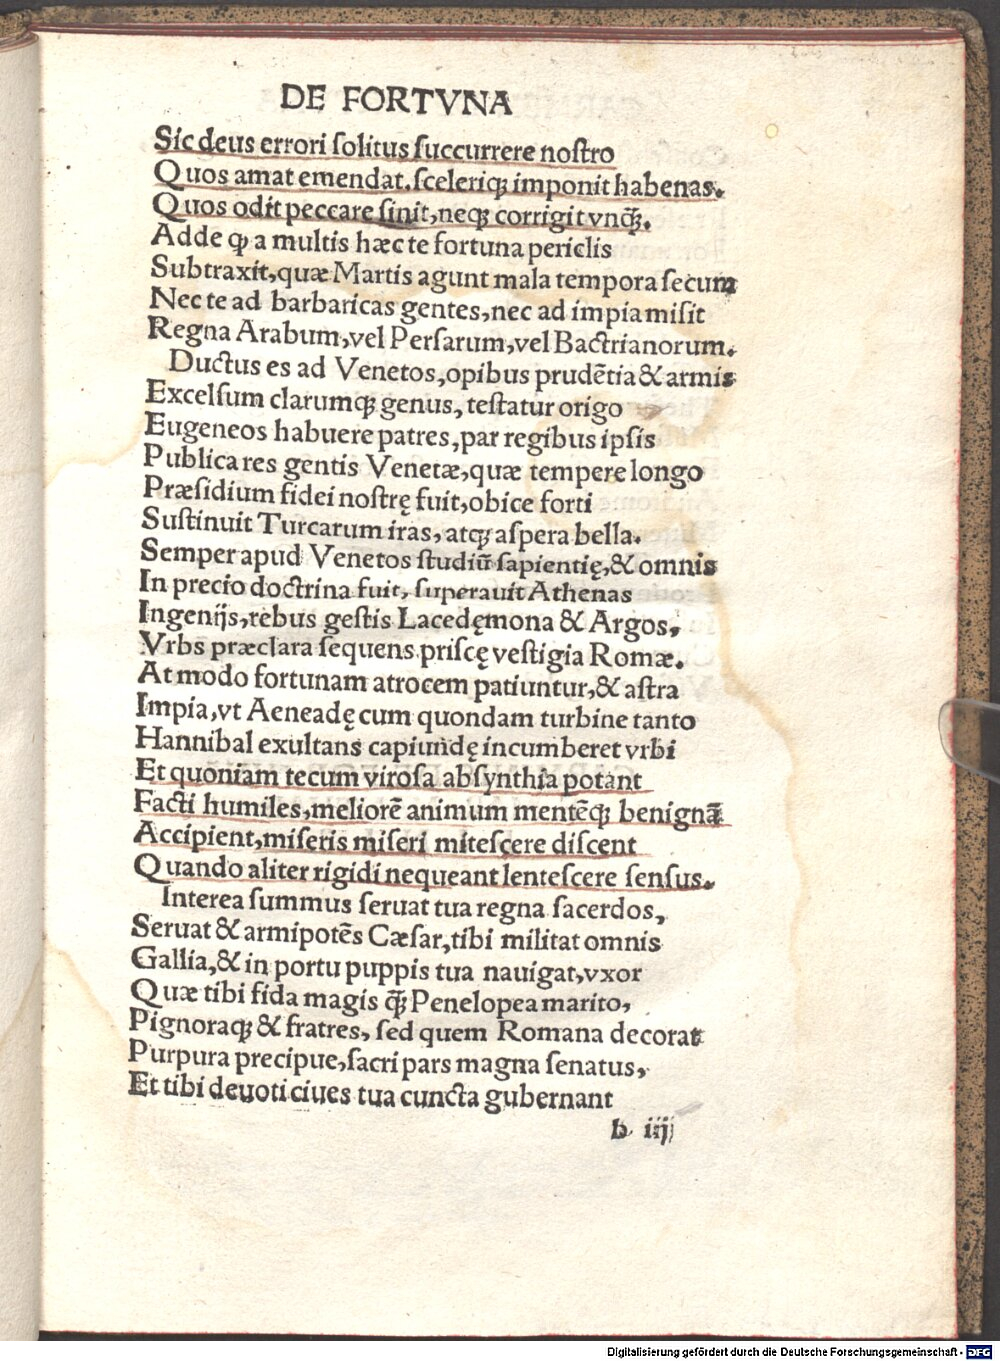 DE FORTVNA
Sic deus errori ſolitus ſuccurrere noſtro
Quos amat emendat.ſceleriqꝫ imponit habenas.
Quos odit peccare ſinit,neqꝫ corrigit vnꝗ̃.
Adde ꝙ a multis hæc te fortuna periclis
Subtraxit,quæ Martis agunt mala tempora ſecum
Nec te ad barbaricas gentes,nec ad impia miſit
Regna Arabum,vel Perſarum,vel Bactrianorum.
Ductus es ad Venetos,opibus prudẽtia & armis
Excelſum clarumqꝫ genus, teſtatur origo
Eugeneos habuere patres,par regibus ipſis
Publica res gentis Venetæ,quæ tempere longo
Præſidium fidei noſtrę fuit,obice forti
Suſtinuit Turcarum iras, atqꝫ aſpera bella.
Semper apud Venetos ſtudiũ ſapientię,& omnis
In precio doctrina fuit, ſuperauit Athenas
Ingenijs,rebus geſtis Lacedęmona & Argos,
Vrbs præclara ſequens priſcę veſtigia Romæ.
At modo fortunam atrocem patiuntur,& aſtra
Impia,vt Aeneadę cum quondam turbine tanto
Hannibal exultans capiundę incumberet vrbi
Et quoniam tecum viroſa abſynthia potant
Facti humiles,meliorẽ animum mentẽqꝫ benignã
Accipient,miſeris miſeri miteſcere diſcent
Quando aliter rigidi nequeant lenteſcere ſenſus.
Interea ſummus ſeruat tua regna ſacerdos,
Seruat & armipotẽs Cæſar,tibi militat omnis
Gallia,& in portu puppis tua nauigat,vxor
Quæ tibi fida magis ꝗ̃ Penelopea marito,
Pignoraqꝫ & fratres, ſed quem Romana decorat
Purpura precipue,ſacri pars magna ſenatus,
Et tibi deuoti ciues tua cuncta gubernant
b iij
Digitalisierung gefördert durch die Deutsche Forschungsgemeinschaft - DFG